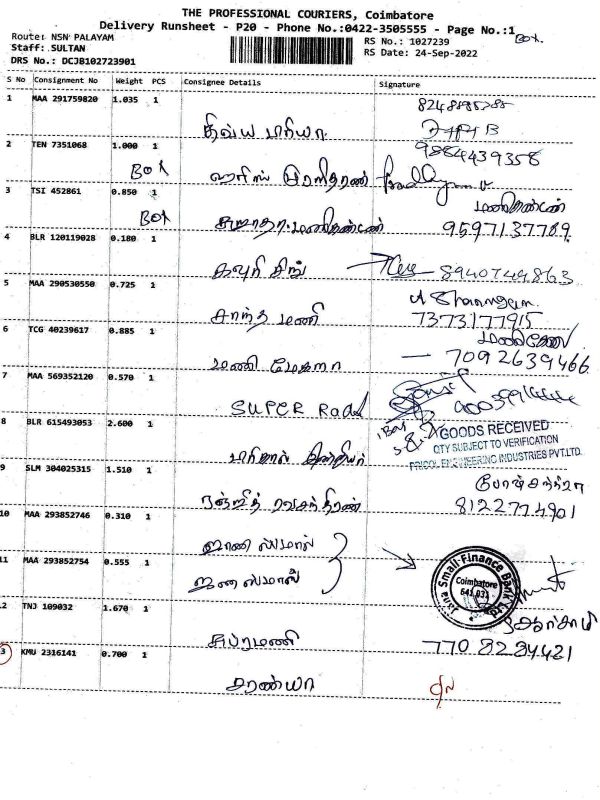 THE PROFESSIONAL COURIERS, Coimbatore
Delivery Runsheet - P20 - Phone No.:0422-3505555 - Page No.:1
Box
Route: NSN PALAYAM
RS No.: 1027239
Staff: SULTAN
RS Date: 24-Sep-2022
DRS No.: DCJB102723901
S No Consignment No Weight PCS Consignee Details Signature
1 MAA 291759820 1.035 1
திவ்ய பாரியா
2 TEN 7351068 1.000 1 9884439358
Box
3 TSI 452861 0.850 1 மணிகண்டன்
Box சுஜாதா மணிகண்டன் 9597137789
4 BLR 120119028 0.180 1
கவுரி சிங் 8940749863
5 MAA 290530550 0.725 1
சாந்த மணி 7373177915
6 TCG 40239617 0.885 1
மணி மேகலா 7092639466
7 MAA 569352120 0.570 1
SUPER Rad
8 BLR 615493053 2.600 1 GOODS RECEIVED
QTY SUBJECT TO VERIFICATION
PRICOL ENGINEERING INDUSTRIES PVT.LTD.
9 SLM 304025315 1.510 1
ரஞ்ஜித் ரவிசந்திரன் 8122774901
10 MAA 293852746 0.310 1
11 MAA 293852754 0.555 1
Jana Small Finance Bank Ltd
Coimbatore
641 031
12 TNJ 109032 1.670 1
சுப்ரமணி 7708284421
13 KMU 2316141 0.700 1
சரண்யா